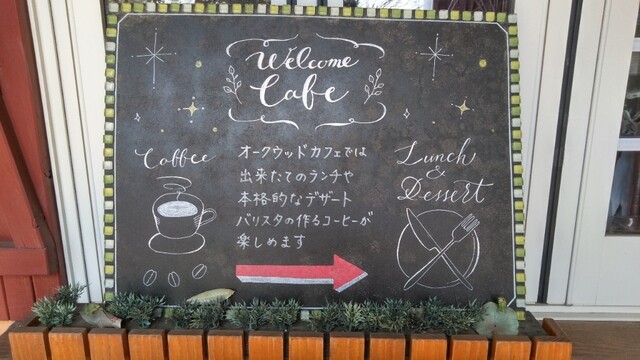 Welcome
Cafe
Coffee
オークウッドカフェでは
出来たてのランチや
本格的なデザート
バリスタの作るコーヒーが
楽しめます
Lunch
&
Dessert